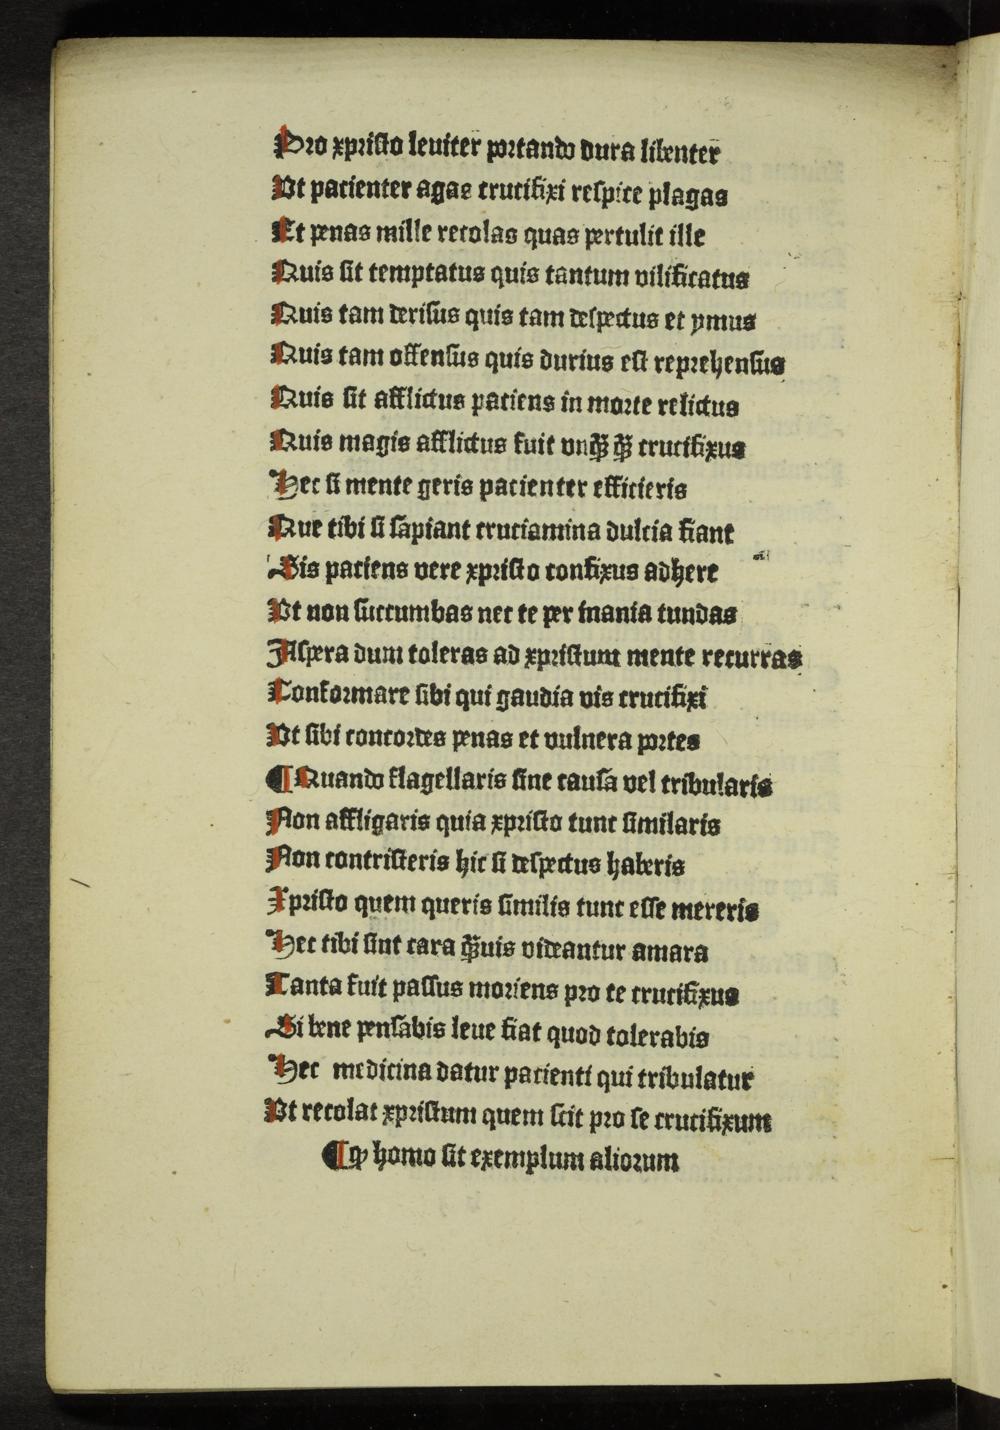 Pro xpristo leuiter portando dura libenter
Vt pacienter agas crucifixi respice plagas
Et penas mille recolas quas pertulit ille
Quis sit temptatus quis tantum vilificatus
Quis tam derisus quis tam despectus et ymus
Quis tam offensus quis durius est reprehensus
Quis sit afflictus paciens in morte relictus
Quis magis afflictus fuit vnqꝫ̄ qꝫ̄ crucifixus
Hec si mente geris pacienter efficieris
Que tibi si sapiant cruciamina dulcia fiant
Sis paciens vere xpristo confixus adhere
Vt non succumbas nec te per inania tundas
Aspera dum toleras ad xpristum mente recurras
Conformare sibi qui gaudia vis crucifixi
Vt sibi concordes penas et vulnera portes
¶ Quando flagellaris sine causa vel tribularis
Non affligaris quia xpristo tunc similaris
Non contristeris hic si despectus haberis
Xpristo quem queris similis tunc esse mereris
Hec tibi sint cara qꝫ̄uis videantur amara
Tanta fuit passus moriens pro te crucifixus
Si bene pensabis leue fiat quod tolerabis
Hec medicina datur pacienti qui tribulatur
Vt recolat xpristum quem scit pro se crucifixum
¶ ꝙ homo sit exemplum aliorum